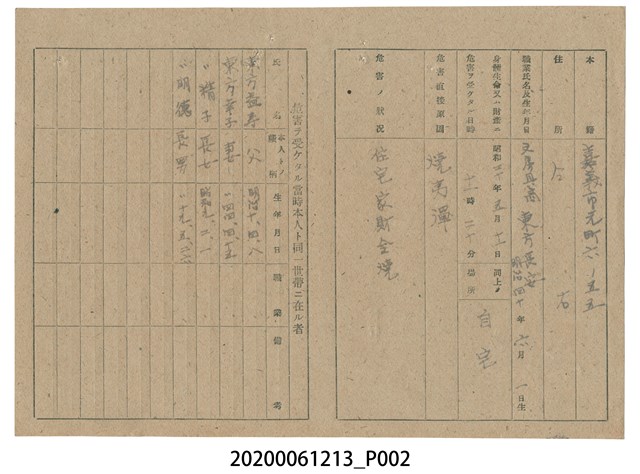 本籍 嘉義市元町六ノ五五
住所 仝右
職業氏名及生年月日 文房具商 東方長安 明治四十年六月一日生
身體生命又ハ財産ニ危害ヲ受ケタル日時 昭和二十年五月十一日 時二十分 同上ノ場所 自宅
危害直接原因 焼夷彈
危害ノ狀況 住宅家財全燒
危害ヲ受ケタル當時本人ト同一世帶ニ在ル者
氏名 本人トノ續柄 生年月日 職業 備考
父 明治十、四、八
東方幸子 妻 〃四四、四、十五
〃精子 長女 昭和九、二、一
〃明德 長男 〃十九、五、二六
20200061213_P002